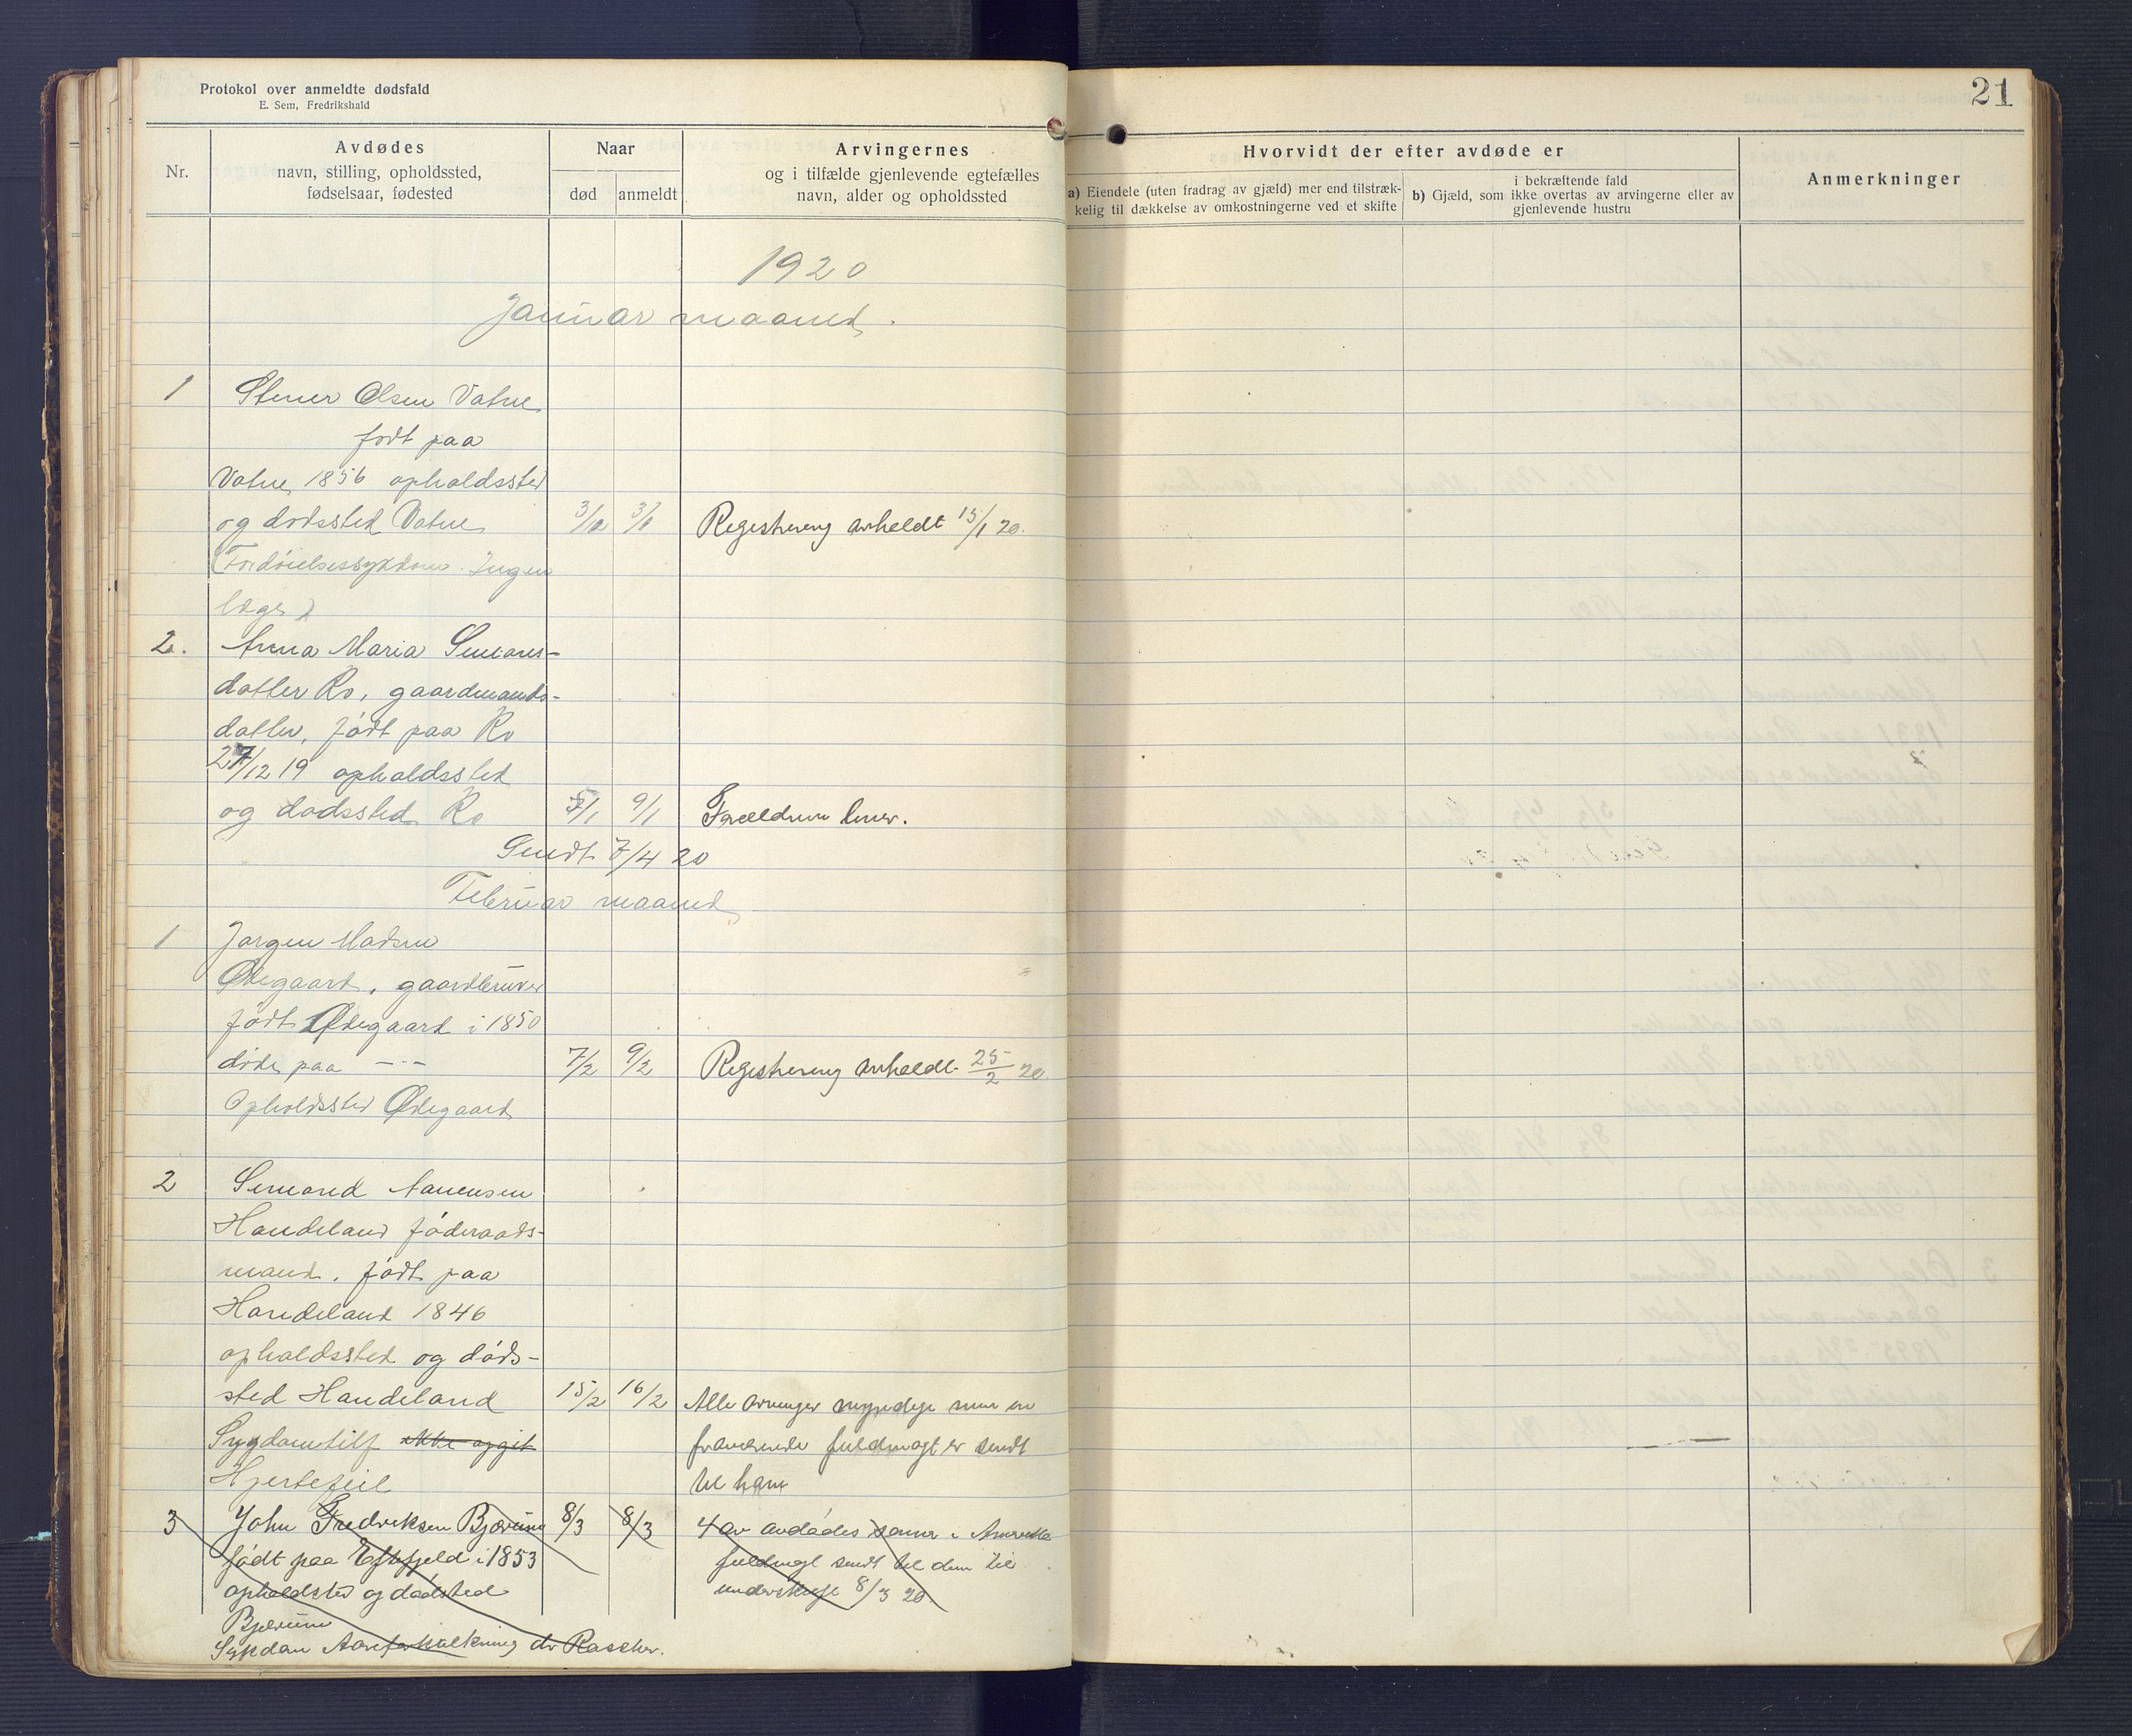 Protokol over anmeldte dødsfald
E. Sem, Fredrikshald
21
Nr.
Avdødes
navn, stilling, opholdssted,
fødselsaar, fødested
Naar
død
anmeldt
Arvingernes
og i tilfælde gjenlevende egtefælles
navn, alder og opholdssted
Hvorvidt der efter avdøde er
a) Eiendele (uten fradrag av gjæld) mer end tilstræk-
kelig til dækkelse av omkostningerne ved et skifte
i bekræftende fald
b) Gjæld, som ikke overtas av arvingerne eller av
gjenlevende hustru
Anmerkninger
1920
Januar maaned.
1 Stener Olsen Vatne
født paa
Vatne 1856 opholdssted
og dødssted Vatne 3/1 Registrering avholdt 15/1 20.
(Fordøielsessykdom. Ingen
læge)
2. Anna Maria Simons-
datter Ro, gaardmands-
datter, født paa Ro
27/12 19 opholdssted
og dødssted Ro 5/1 9/1 Forældrene lever.
Sendt 7/4 20
Februar maaned
1 Jørgen Madsen
Ødegaard, gaardbruker
født Ødegaard i 1850
døde paa -"- 7/2 9/2 Registrering avholdt 25/2 20.
Opholdssted Ødegaard
2 Simond Aanensen
Handeland føderaads-
mand. født paa
Handeland 1846
opholdssted og døds-
sted Handeland 15/2 16/2 Alle arvinger myndige men en
Sygdomstilf ikke opgit fraværende fuldmagt er sendt
Hjertefeil til ham
3 John Fredriksen Bjørum 8/3 8/3 4 av avdødes sønner i Amerika
født paa Eftefjeld i 1853 fuldmagt sendt til dem til
opholdsted og dødsted underskrift 8/3 20.
Bjørum
Sykdom Aareforkalkning dr Rascher.